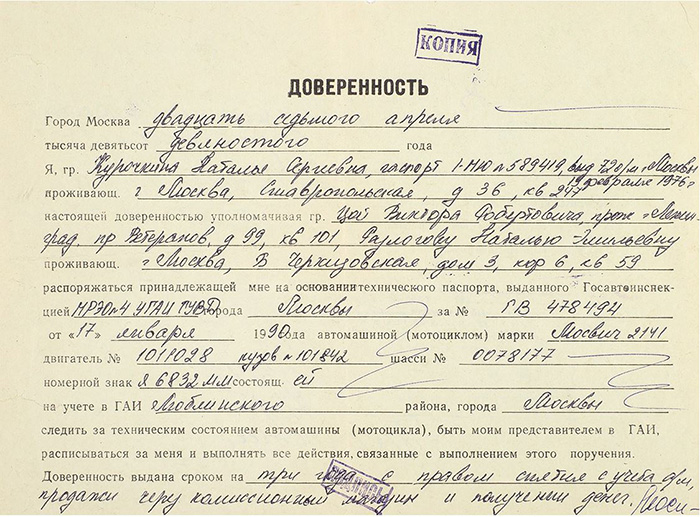 КОПИЯ
ДОВЕРЕННОСТЬ
Город Москва двадцать седьмого апреля
тысяча девятьсот девяностого года
Я, гр. Курочкина Наталья Сергеевна, паспорт I-МЮ № 589419, выд 72 о/м г Москвы
9 февраля 1976 г
проживающ. г Москва, Ставропольская, д 36, кв 247
настоящей доверенностью уполномачивая гр. Цой Виктора Робертовича, прож г Ленин
град, пр Ветеранов, д 99, кв 101, Разлогову Наталью Эмильевну
проживающ. г Москва, Б Черкизовская, дом 3, кор 6, кв 59
распоряжаться принадлежащей мне на основании технического паспорта, выданного Госавтоинспек-
цией МРЭО №4 УГАИ ГУВД города Москвы за № ГВ 478494
от «17» января 1990 автомашиной (мотоциклом) марки Москвич 2141
двигатель № 1011028 кузов № 101842 шасси № 0078177
номерной знак Я 6832 ММ состоящ ей
на учете в ГАИ Люблинского района, города Москвы
следить за техническим состоянием автомашины (мотоцикла), быть моим представителем в ГАИ,
расписываться за меня и выполнять все действия, связанные с выполнением этого поручения.
Доверенность выдана сроком на три года с правом снятия с учета для
продажи через комиссионный магазин и получения денег.